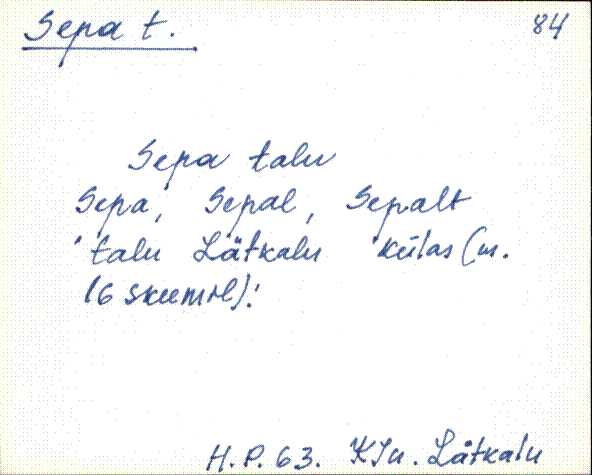 Sepa t. 84
Sepa talu
Sepa, Sepal, Sepalt
'talu Lätkalu 'külas (m.
H. P. 63. KJn. Lätkalu